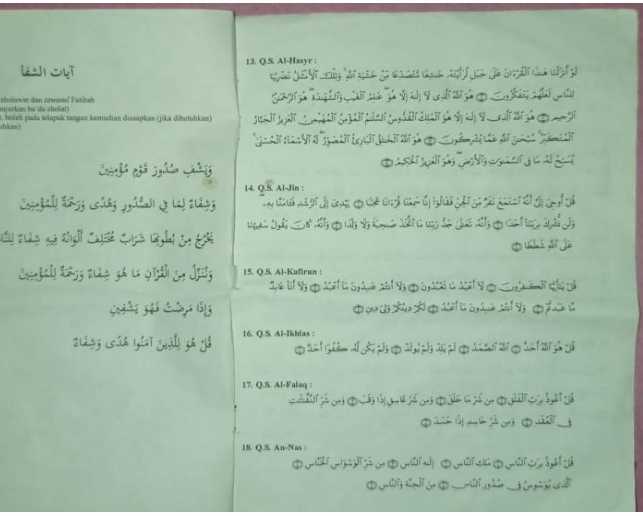 آيات الشفأ
sholawat dan tawasul Fatihah
njurkan ba'da sholat)
, boleh pada telapak tangan kemudian diusapkan (jika dibutuhkan)
uhkan)
وَيَشْفِ صُدُورَ قَوْمٍ مُؤْمِنِينَ
وَشِفَاءٌ لِمَا فِي الصُّدُورِ وَهُدًى وَرَحْمَةٌ لِلْمُؤْمِنِينَ
يَخْرُجُ مِنْ بُطُونِهَا شَرَابٌ مُخْتَلِفٌ أَلْوَانُهُ فِيهِ شِفَاءٌ لِلنَّا
وَنُنَزِّلُ مِنَ الْقُرْآنِ مَا هُوَ شِفَاءٌ وَرَحْمَةٌ لِلْمُؤْمِنِينَ
وَإِذَا مَرِضْتُ فَهُوَ يَشْفِينِ
قُلْ هُوَ لِلَّذِينَ آمَنُوا هُدًى وَشِفَاءٌ
13. Q.S. Al-Hasyr :
لَوْ أَنزَلْنَا هَٰذَا ٱلْقُرْءَانَ عَلَىٰ جَبَلٍ لَّرَأَيْتَهُۥ خَٰشِعًا مُّتَصَدِّعًا مِّنْ خَشْيَةِ ٱللَّهِ ۚ وَتِلْكَ ٱلْأَمْثَٰلُ نَضْرِبُهَا
لِلنَّاسِ لَعَلَّهُمْ يَتَفَكَّرُونَ هُوَ ٱللَّهُ ٱلَّذِى لَآ إِلَٰهَ إِلَّا هُوَ ۖ عَٰلِمُ ٱلْغَيْبِ وَٱلشَّهَٰدَةِ ۖ هُوَ ٱلرَّحْمَٰنُ
ٱلرَّحِيمُ هُوَ ٱللَّهُ ٱلَّذِى لَآ إِلَٰهَ إِلَّا هُوَ ٱلْمَلِكُ ٱلْقُدُّوسُ ٱلسَّلَٰمُ ٱلْمُؤْمِنُ ٱلْمُهَيْمِنُ ٱلْعَزِيزُ ٱلْجَبَّارُ
ٱلْمُتَكَبِّرُ ۚ سُبْحَٰنَ ٱللَّهِ عَمَّا يُشْرِكُونَ هُوَ ٱللَّهُ ٱلْخَٰلِقُ ٱلْبَارِئُ ٱلْمُصَوِّرُ ۖ لَهُ ٱلْأَسْمَآءُ ٱلْحُسْنَىٰ ۚ
يُسَبِّحُ لَهُۥ مَا فِى ٱلسَّمَٰوَٰتِ وَٱلْأَرْضِ ۖ وَهُوَ ٱلْعَزِيزُ ٱلْحَكِيمُ
14. Q.S. Al-Jin :
قُلْ أُوحِىَ إِلَىَّ أَنَّهُ ٱسْتَمَعَ نَفَرٌ مِّنَ ٱلْجِنِّ فَقَالُوٓا۟ إِنَّا سَمِعْنَا قُرْءَانًا عَجَبًا يَهْدِىٓ إِلَى ٱلرُّشْدِ فَـَٔامَنَّا بِهِۦ ۖ
وَلَن نُّشْرِكَ بِرَبِّنَآ أَحَدًا وَأَنَّهُۥ تَعَٰلَىٰ جَدُّ رَبِّنَا مَا ٱتَّخَذَ صَٰحِبَةً وَلَا وَلَدًا وَأَنَّهُۥ كَانَ يَقُولُ سَفِيهُنَا
عَلَى ٱللَّهِ شَطَطًا
15. Q.S. Al-Kafirun :
قُلْ يَٰٓأَيُّهَا ٱلْكَٰفِرُونَ لَآ أَعْبُدُ مَا تَعْبُدُونَ وَلَآ أَنتُمْ عَٰبِدُونَ مَآ أَعْبُدُ وَلَآ أَنَا۠ عَابِدٌ
مَّا عَبَدتُّمْ وَلَآ أَنتُمْ عَٰبِدُونَ مَآ أَعْبُدُ لَكُمْ دِينُكُمْ وَلِىَ دِينِ
16. Q.S. Al-Ikhlas :
قُلْ هُوَ ٱللَّهُ أَحَدٌ ٱللَّهُ ٱلصَّمَدُ لَمْ يَلِدْ وَلَمْ يُولَدْ وَلَمْ يَكُن لَّهُۥ كُفُوًا أَحَدٌۢ
17. Q.S. Al-Falaq :
قُلْ أَعُوذُ بِرَبِّ ٱلْفَلَقِ مِن شَرِّ مَا خَلَقَ وَمِن شَرِّ غَاسِقٍ إِذَا وَقَبَ وَمِن شَرِّ ٱلنَّفَّٰثَٰتِ
فِى ٱلْعُقَدِ وَمِن شَرِّ حَاسِدٍ إِذَا حَسَدَ
18. Q.S. An-Nas :
قُلْ أَعُوذُ بِرَبِّ ٱلنَّاسِ مَلِكِ ٱلنَّاسِ إِلَٰهِ ٱلنَّاسِ مِن شَرِّ ٱلْوَسْوَاسِ ٱلْخَنَّاسِ
ٱلَّذِى يُوَسْوِسُ فِى صُدُورِ ٱلنَّاسِ مِنَ ٱلْجِنَّةِ وَٱلنَّاسِ